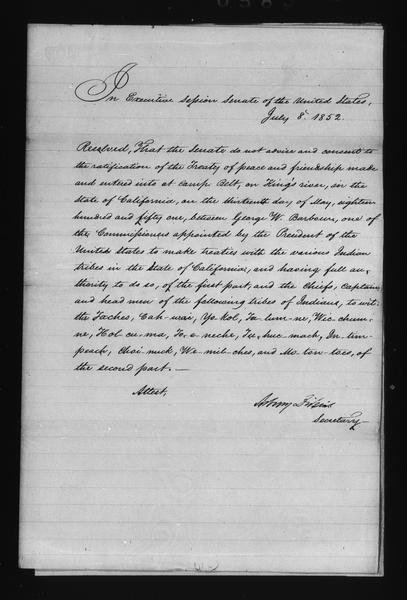 In Executive Session Senate of the United States,
July 8. 1852.
Resolved, That the Senate do not advise and consent to
the ratification of the Treaty of peace and friendship made
and entered into at camp Belt, on King's river, in the
State of California, on the thirteenth day of May, eighteen
hundred and fifty one, between George W. Barbour, one of
the Commissioners appointed by the President of the
United States to make treaties with the various Indian
tribes in the State of California, and having full au-
thority to do so, of the first part, and the chiefs, captains
and head men of the following tribes of Indians, to wit:
the Taches, Cah-wai, Yo-kol, Ta-lum-ne, Wic-chum-
ne, Hol-cu-ma, To-e-neche, Tu-huc-mach, In-tim-
peach, Choi-nuck, We-mil-ches, and Mo-ton-toes, of
the second part.—
Attest,
Asbury Dickins
Secretary